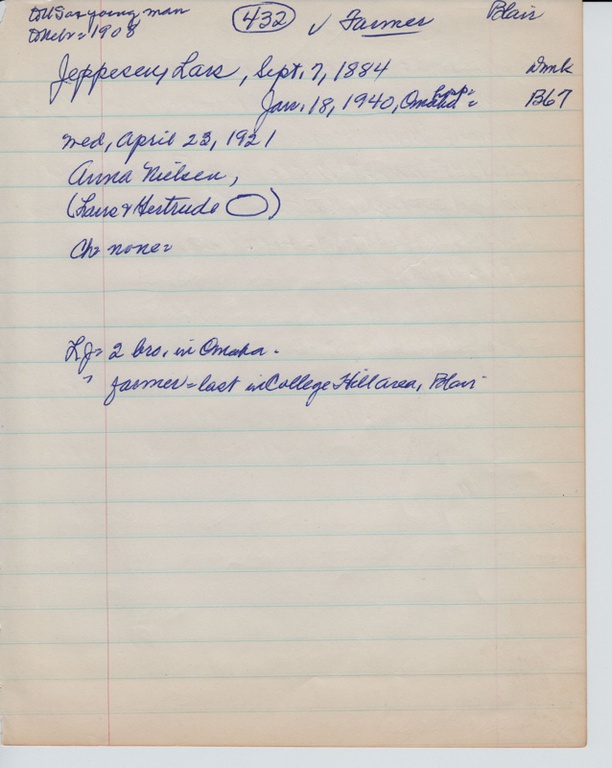 to US as young man
to Nebr = 1908
432 ✓ Farmer
Blair
Jeppesen, Lars, Sept. 7, 1884 Dmk
Jan. 18, 1940, Omaha Hosp = B67
wed, April 23, 1921
Anna Nielsen,
(Lars & Gertrude )
Ch = none =
L.J. = 2 bro. in Omaha.
" farmer = last in College Hill area, Blair